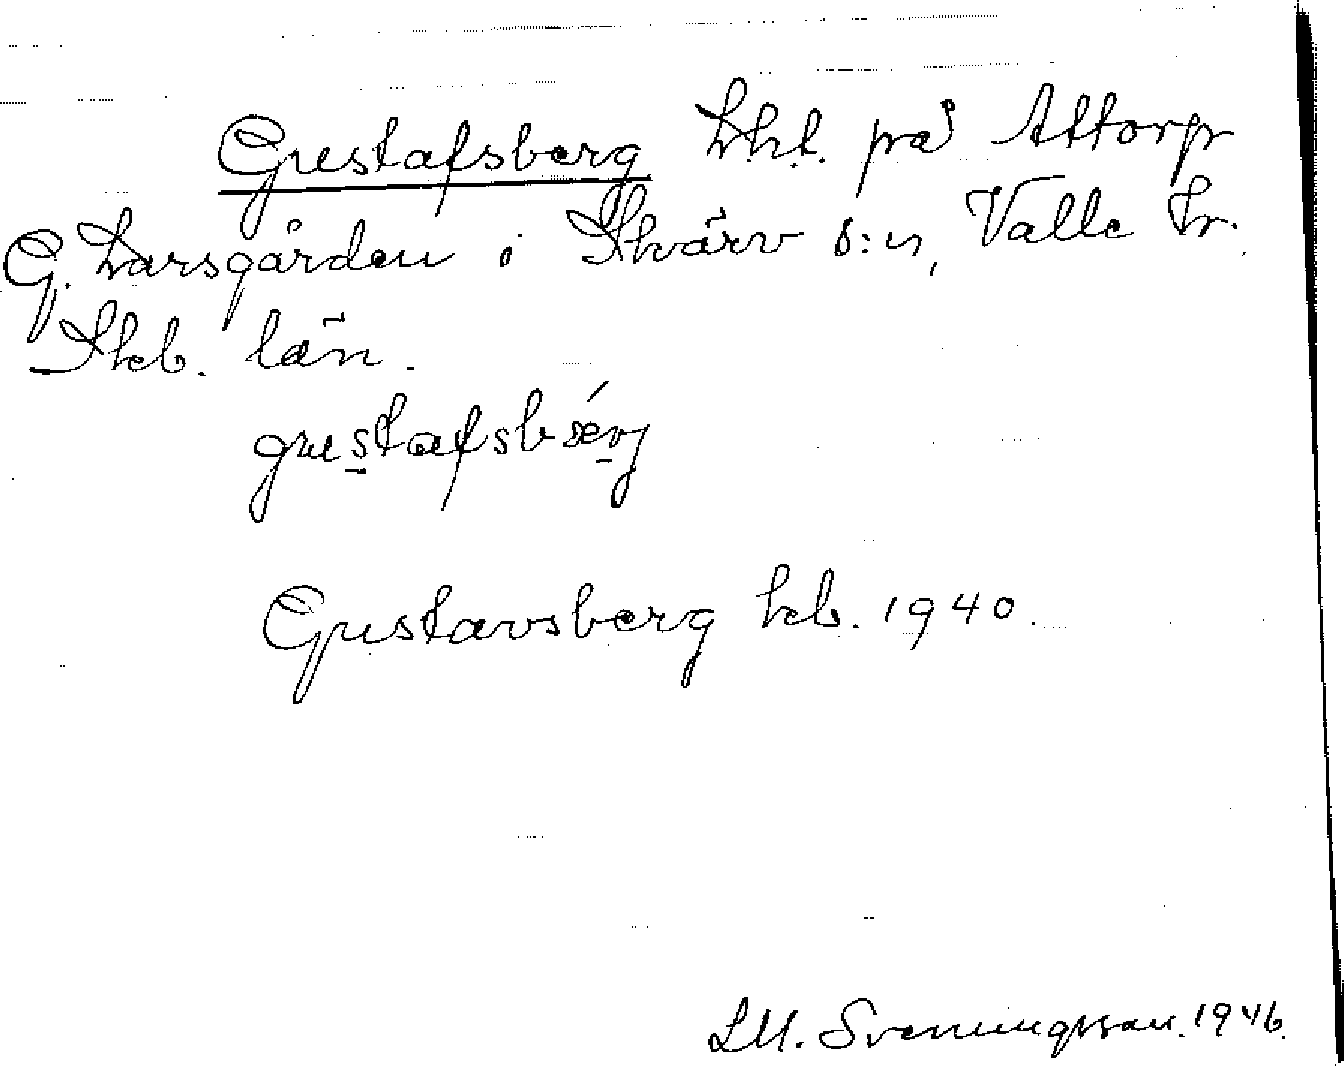 Gustafsberg Lht. på Attorp
G. Larsgården i Skärv s:n, Valle hr.
Skb. län.
gustafsbærj
Gustavsberg kb. 1940.
LM. Svenungsson. 1946.